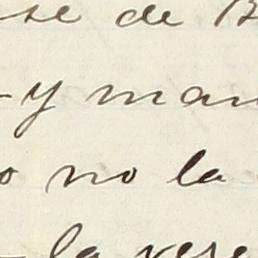 se de B
y man
o no la
la vere